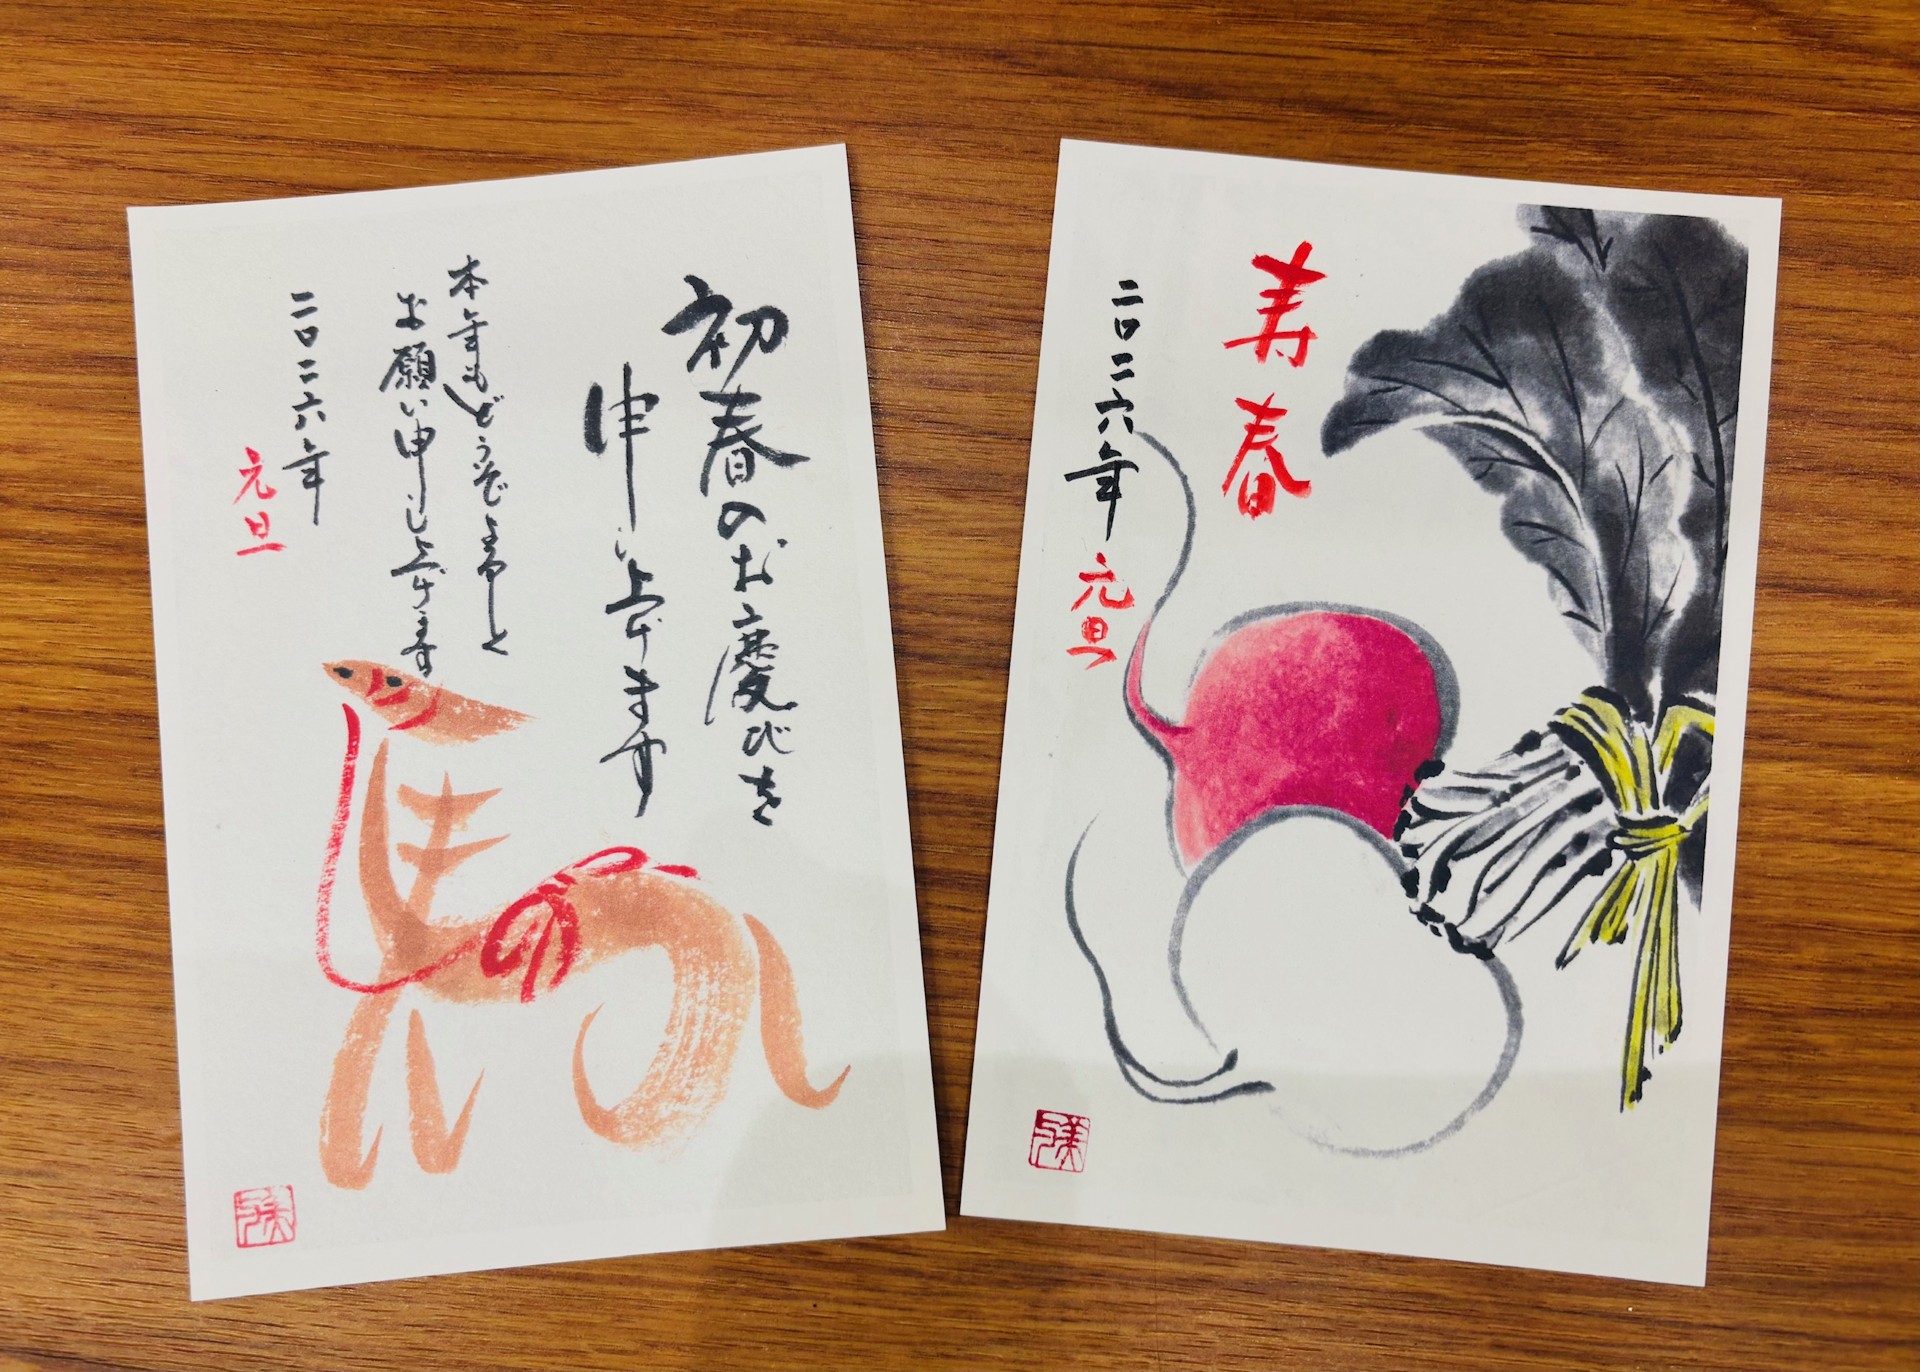 初春のお慶びを
申し上げます
本年もどうぞよろしく
お願い申し上げます
二〇二六年
元旦
寿春
二〇二六年 元旦